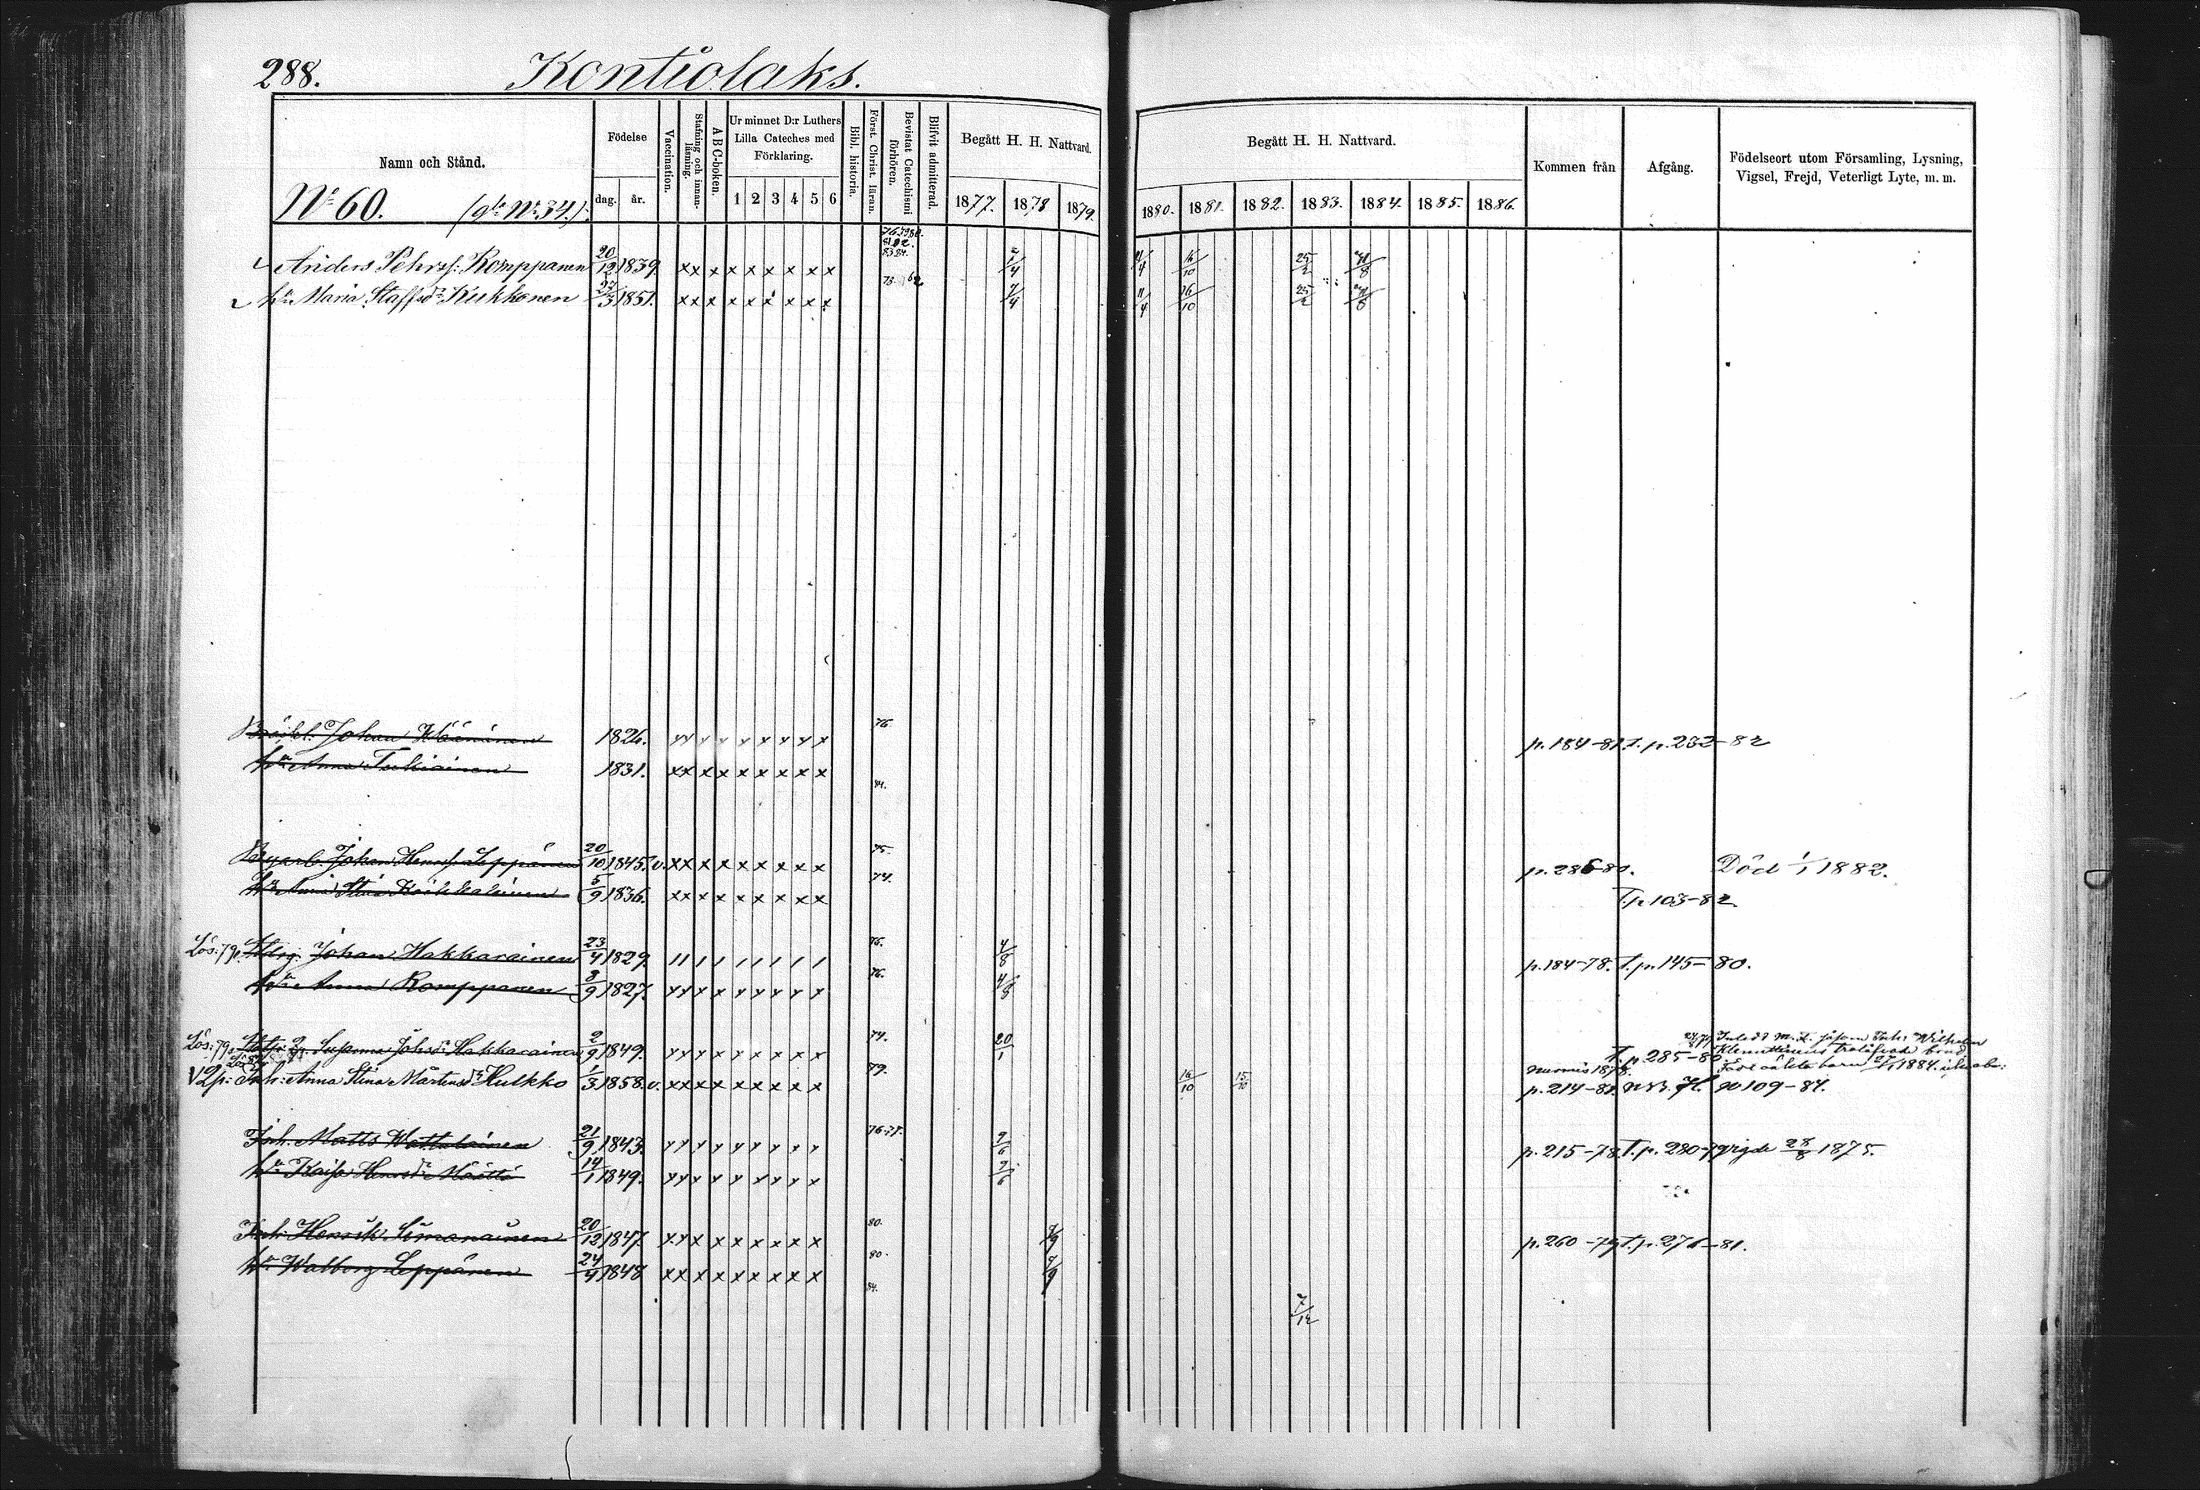 288. Kontiolaks.
Namn och Stånd.
Födelse
dag. år.
Vaccination.
Stafning och innanläsning.
ABC-boken.
Ur minnet D:r Luthers Lilla Cateches med Förklaring.
1 2 3 4 5 6
Bibl. historia.
Först. Christ. läran.
Bevistat Catechismi förhören.
Blifvit admitterad.
Begått H. H. Nattvard.
1877. 1878 1879.
Begått H. H. Nattvard.
1880. 1881. 1882. 1883. 1884. 1885. 1886.
Kommen från
Afgång.
Födelseort utom Församling, Lysning, Vigsel, Frejd, Veterligt Lyte, m. m.
No 60. (gle No 34.)
Anders Pehrss: Komppanen 20/12 1839 x x x x x x x x x 7/4 11/4 16/10 25/2
hu Maria Staffsdr Kukkonen 1851. x x x x x x x x x 7/4 11/4 16/10 25/2
Johan 1826. 76 p. 184-81. T. p. 232-82
hu Anna 1831. x x x x x x x x x 84.
Johan Henrss Leppänen 20/10 1845. v. x x x x x x x x x 75. p. 286-80. Död 1/1 1882.
hu Anna Stina 5/9 1836. x x x x x x x x x 74. T. p. 103-82
Lös: 79. Johan Hakkarainen 23/4 1829. 76. 4/8 p. 184-78. T. p. 145-80.
hu Anna Komppanen 8/9 1827. 76. 4/8
Lös: 79. Susanna Johsdr Hakkarainen 2/9 1849. 74. 20/1 T. p. 285-80
Inh: Anna Stina Mårtensdr Hulkko 1/3 1858. v. x x x x x x x x x 79. 16/10 15/10 p. 214-81. No 109-84.
Inh. Matts Wattulainen 21/9 1843. 76.77. 9/6 p. 215-78. T. p. 280-79 vigde 28/8 1875.
hu Kaisa Henrsdr Määttä 14/1 1849. 9/6
Inh: Henrik Simanainen 20/12 1847. x x x x x x x x x 80. 7/9 p. 260-79 T. p. 276-81.
hu Walborg Leppänen 24/4 1848 x x x x x x x x x 80. 7/9
84.
7/12